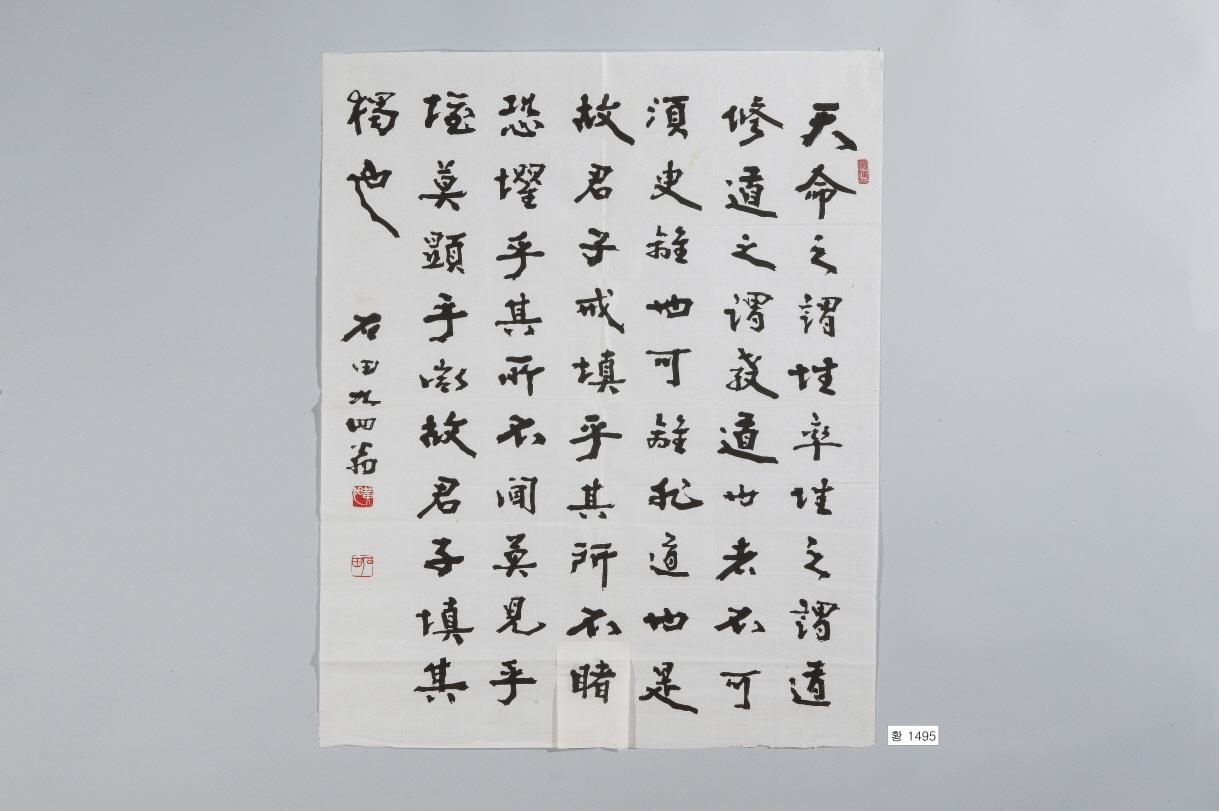 天命之謂性率性之謂道
修道之謂敎道也者不可
須臾離也可離非道也是
故君子戒慎乎其所不睹
恐懼乎其所不聞莫見乎
隱莫顯乎微故君子慎其
獨也
石田九四翁
황 1495